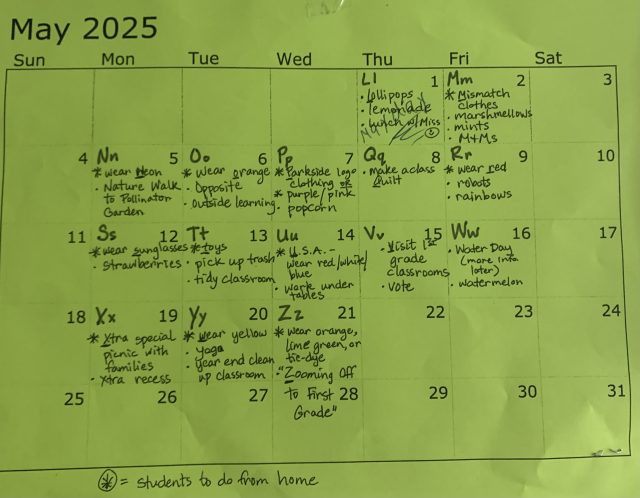 May 2025
Sun Mon Tue Wed Thu Fri Sat
Ll 1
• Lollipops
• Lemonade
w/Miss
Mm 2
* Mismatch
clothes
• marshmellows
• mints
• M+Ms
3
4
Nn 5
* wear Neon
• Nature Walk
to Pollinator
Garden
Oo 6
* wear orange
• Opposite
• Outside learning
Pp 7
* Parkside logo
clothing or
* purple/pink
• popcorn
Qq 8
• make a class
Quilt
Rr 9
* wear red
• robots
• rainbows
10
11
Ss 12
* wear sunglasses
• strawberries
Tt 13
* toys
• pick up trash
• tidy classroom
Uu 14
* U.S.A. -
wear red/white/
blue
• work under
tables
Vv 15
• Visit 1st
grade
classrooms
• vote
Ww 16
• Water Day
(more info
later)
• watermelon
17
18
Xx 19
* Xtra special
picnic with
families
• Xtra recess
Yy 20
* wear yellow
• Yoga
• Year end clean
up classroom
Zz 21
* wear orange,
lime green, or
tie-dye
• "Zooming Off
to First
Grade"
22
23
24
25
26
27
28
29
30
31
* = students to do from home